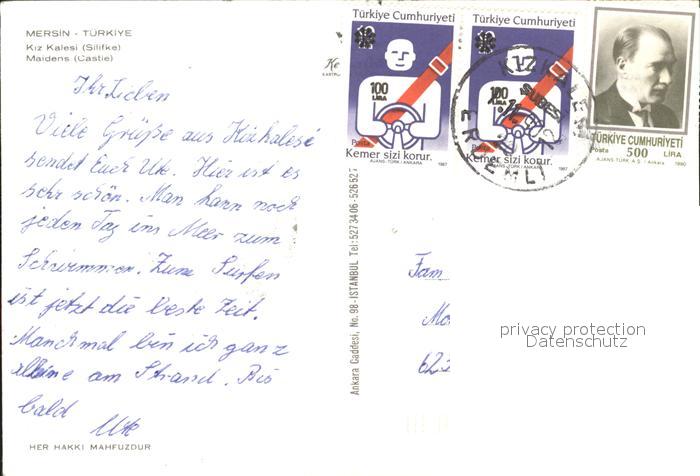 MERSİN - TÜRKİYE
Kız Kalesi (Silifke)
Maidens (Castle)
Ihr Lieben
Viele Grüße aus Kizkalesi
sendet Euch Ute. Hier ist es
sehr schön. Man kann noch
jeden Tag im Meer zum
Schwimmen. Zum Surfen
ist jetzt die beste Zeit.
Manchmal bin ich ganz
alleine am Strand. Bis
bald
Ute
HER HAKKI MAHFUZDUR
Ankara Caddesi, No. 98-ISTANBUL Tel: 5273406-526527
Türkiye Cumhuriyeti
100
LİRA
Posta
Kemer sizi korur.
AJANS-TÜRK / ANKARA 1987
Türkiye Cumhuriyeti
100
LİRA
Posta
Kemer sizi korur.
AJANS-TÜRK / ANKARA 1987
TÜRKİYE CUMHURİYETİ
Posta 500 LİRA
AJANS-TÜRK A.Ş. / Ankara 1990
Fam
privacy protection
Datenschutz